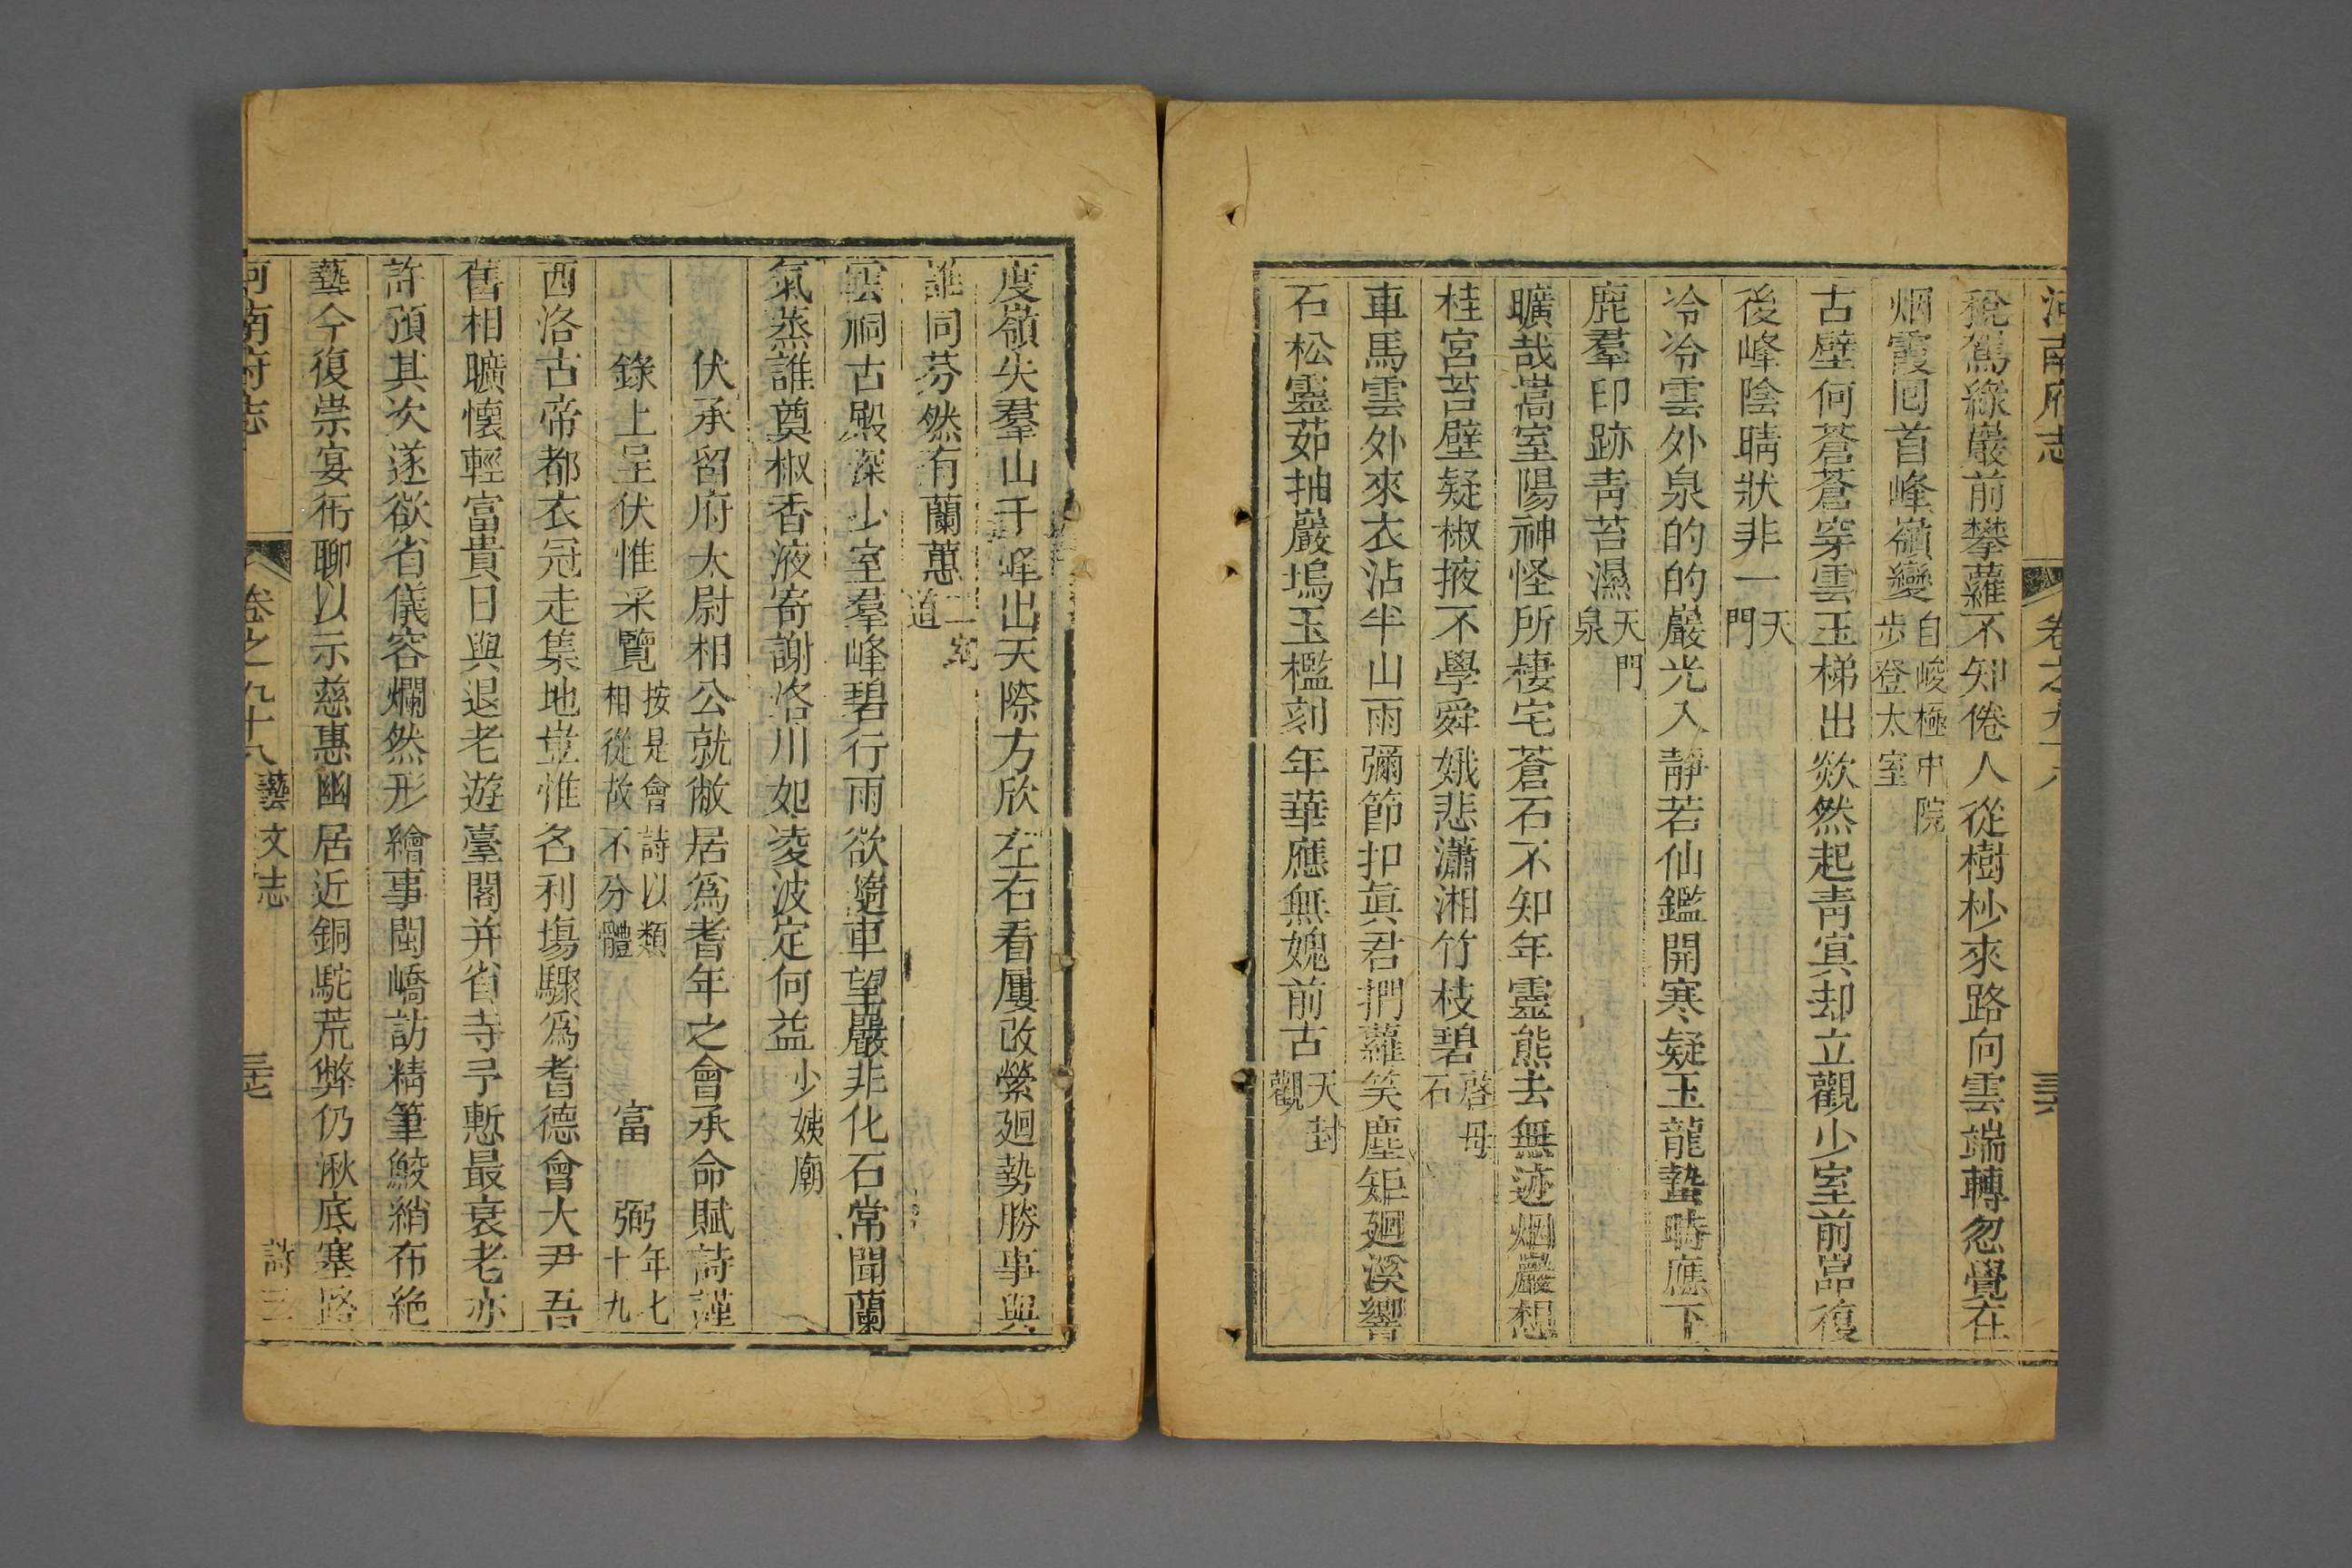 河南府志 卷之九十八 三六
稅駕緣巖前攀蘿不知倦人從樹杪來路向雲端轉忽覺在
烟霞囘首峰嶺變自峻極中院步登太室
古壁何蒼蒼穿雲玉梯出欻然起靑㝠却立觀少室前嵓復
後峰陰晴狀非一天門
冷冷雲外泉的的巖光入靜若仙鑑開寒疑玉龍蟄時應下
鹿羣印跡靑苔濕天門泉
曠哉嵩室陽神怪所棲宅蒼石不知年靈熊去無迹烟巖想
桂宮苔壁疑椒掖不學舜娥悲瀟湘竹枝碧啓母石
車馬雲外來衣沾半山雨彌節扣眞君捫蘿笑塵矩廻溪響
石松靈茹抽巖塢玉檻刻年華應無媿前古天封觀
度嶺失羣山千峰出天際方欣左右看屢改縈廻勢勝事與
誰同芬然有蘭蕙二室道
雲祠古殿深少室羣峰碧行雨欲隨車望巖非化石常聞蘭
氣蒸誰奠椒香液寄謝洛川妃凌波定何益少姨廟
伏承留府太尉相公就敝居爲耆年之會承命賦詩謹
錄上呈伏惟采覽按是會詩以類相從故不分體 富弼年七十九
西洛古帝都衣冠走集地豈惟名利塲驟爲耆德會大尹吾
舊相曠懷輕富貴日與退老遊臺閣并省寺予慙最衰老亦
許預其次遂欲省儀容爛然形繪事閩嶠訪精筆鮫綃布絶
藝今復崇宴衎聊以示慈惠幽居近銅駝荒弊仍湫底塞路
河南府志 卷之九十八 藝文志 詩三 三七